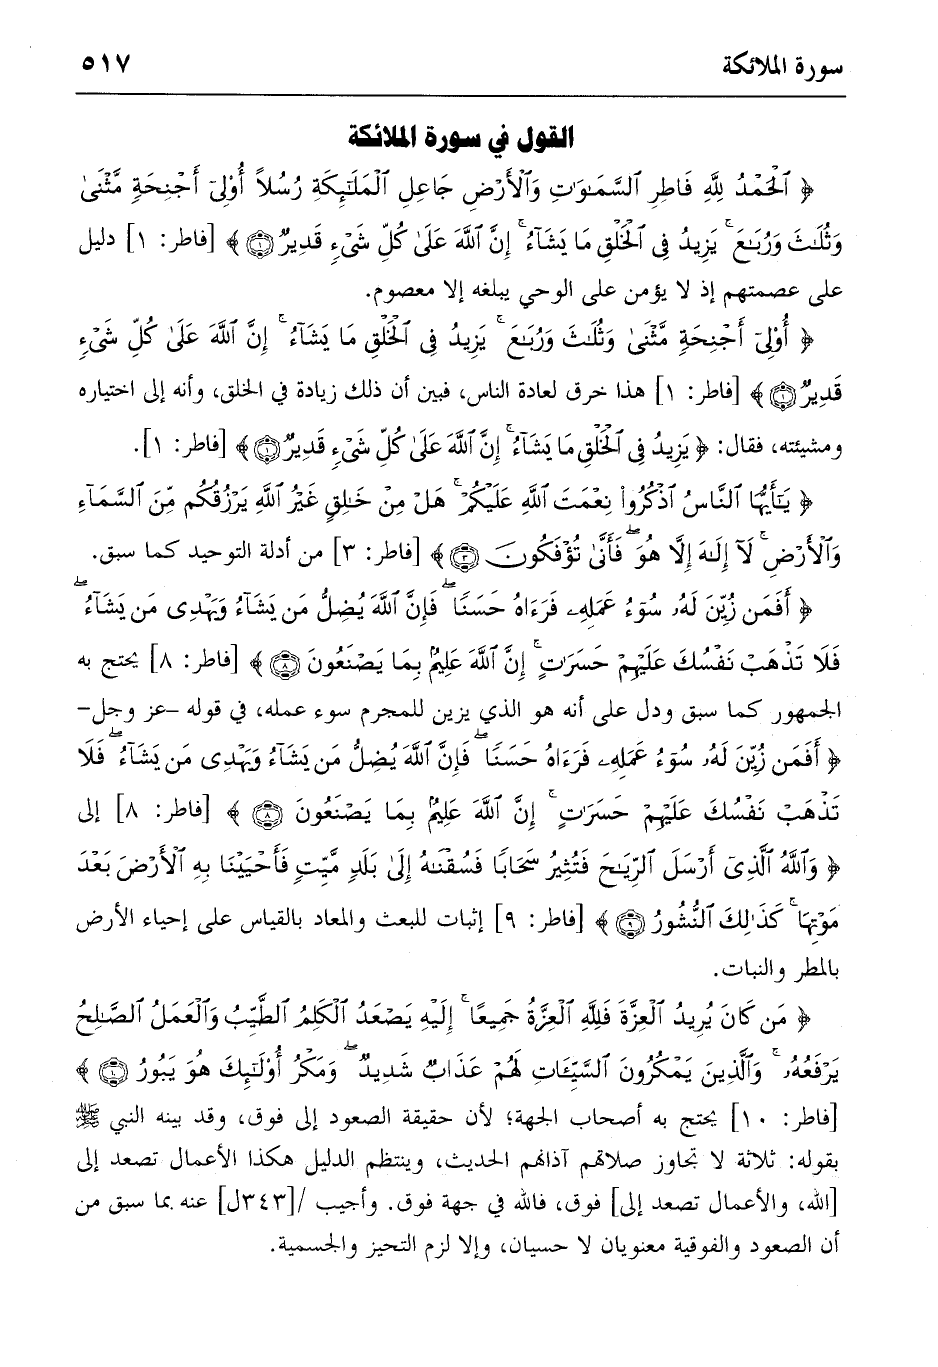 سورة الملائكة ٥١٧
القول في سورة الملائكة
﴿ ٱلْحَمْدُ لِلَّهِ فَاطِرِ ٱلسَّمَـٰوَٰتِ وَٱلْأَرْضِ جَاعِلِ ٱلْمَلَـٰٓئِكَةِ رُسُلًا أُو۟لِىٓ أَجْنِحَةٍ مَّثْنَىٰ
وَثُلَـٰثَ وَرُبَـٰعَ ۚ يَزِيدُ فِى ٱلْخَلْقِ مَا يَشَآءُ ۚ إِنَّ ٱللَّهَ عَلَىٰ كُلِّ شَىْءٍ قَدِيرٌ ۝١ ﴾ [فاطر: ١] دليل
على عصمتهم إذ لا يؤمن على الوحي يبلغه إلا معصوم.
﴿ أُو۟لِىٓ أَجْنِحَةٍ مَّثْنَىٰ وَثُلَـٰثَ وَرُبَـٰعَ ۚ يَزِيدُ فِى ٱلْخَلْقِ مَا يَشَآءُ ۚ إِنَّ ٱللَّهَ عَلَىٰ كُلِّ شَىْءٍ
قَدِيرٌ ۝١ ﴾ [فاطر: ١] هذا خرق لعادة الناس، فبين أن ذلك زيادة في الخلق، وأنه إلى اختياره
ومشيئته، فقال: ﴿ يَزِيدُ فِى ٱلْخَلْقِ مَا يَشَآءُ ۚ إِنَّ ٱللَّهَ عَلَىٰ كُلِّ شَىْءٍ قَدِيرٌ ۝١ ﴾ [فاطر: ١].
﴿ يَـٰٓأَيُّهَا ٱلنَّاسُ ٱذْكُرُوا۟ نِعْمَتَ ٱللَّهِ عَلَيْكُمْ ۚ هَلْ مِنْ خَـٰلِقٍ غَيْرُ ٱللَّهِ يَرْزُقُكُم مِّنَ ٱلسَّمَآءِ
وَٱلْأَرْضِ ۚ لَآ إِلَـٰهَ إِلَّا هُوَ ۖ فَأَنَّىٰ تُؤْفَكُونَ ۝٣ ﴾ [فاطر: ٣] من أدلة التوحيد كما سبق.
﴿ أَفَمَن زُيِّنَ لَهُۥ سُوٓءُ عَمَلِهِۦ فَرَءَاهُ حَسَنًا ۖ فَإِنَّ ٱللَّهَ يُضِلُّ مَن يَشَآءُ وَيَهْدِى مَن يَشَآءُ ۖ
فَلَا تَذْهَبْ نَفْسُكَ عَلَيْهِمْ حَسَرَٰتٍ ۚ إِنَّ ٱللَّهَ عَلِيمٌۢ بِمَا يَصْنَعُونَ ۝٨ ﴾ [فاطر: ٨] يحتج به
الجمهور كما سبق ودل على أنه هو الذي يزين للمجرم سوء عمله، في قوله -عز وجل-
﴿ أَفَمَن زُيِّنَ لَهُۥ سُوٓءُ عَمَلِهِۦ فَرَءَاهُ حَسَنًا ۖ فَإِنَّ ٱللَّهَ يُضِلُّ مَن يَشَآءُ وَيَهْدِى مَن يَشَآءُ ۖ فَلَا
تَذْهَبْ نَفْسُكَ عَلَيْهِمْ حَسَرَٰتٍ ۚ إِنَّ ٱللَّهَ عَلِيمٌۢ بِمَا يَصْنَعُونَ ۝٨ ﴾ [فاطر: ٨] إلى
﴿ وَٱللَّهُ ٱلَّذِىٓ أَرْسَلَ ٱلرِّيَـٰحَ فَتُثِيرُ سَحَابًا فَسُقْنَـٰهُ إِلَىٰ بَلَدٍ مَّيِّتٍ فَأَحْيَيْنَا بِهِ ٱلْأَرْضَ بَعْدَ
مَوْتِهَا ۚ كَذَٰلِكَ ٱلنُّشُورُ ۝٩ ﴾ [فاطر: ٩] إثبات للبعث والمعاد بالقياس على إحياء الأرض
بالمطر والنبات.
﴿ مَن كَانَ يُرِيدُ ٱلْعِزَّةَ فَلِلَّهِ ٱلْعِزَّةُ جَمِيعًا ۚ إِلَيْهِ يَصْعَدُ ٱلْكَلِمُ ٱلطَّيِّبُ وَٱلْعَمَلُ ٱلصَّـٰلِحُ
يَرْفَعُهُۥ ۚ وَٱلَّذِينَ يَمْكُرُونَ ٱلسَّيِّـَٔاتِ لَهُمْ عَذَابٌ شَدِيدٌ ۖ وَمَكْرُ أُو۟لَـٰٓئِكَ هُوَ يَبُورُ ۝١٠ ﴾
[فاطر: ١٠] يحتج به أصحاب الجهة؛ لأن حقيقة الصعود إلى فوق، وقد بينه النبي ﷺ
بقوله: ثلاثة لا تجاوز صلاتهم آذانهم الحديث، وينتظم الدليل هكذا الأعمال تصعد إلى
[الله، والأعمال تصعد إلى] فوق، فالله في جهة فوق. وأجيب /[٣٤٣ل] عنه بما سبق من
أن الصعود والفوقية معنويان لا حسيان، وإلا لزم التحيز والجسمية.